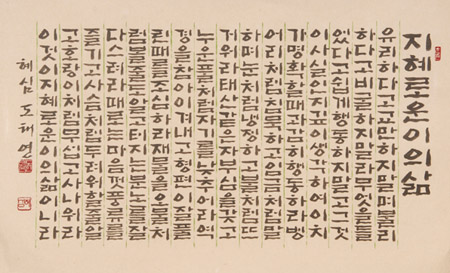 지혜로운이의삶
유리하다고교만하지말며불리
하다고비굴하지말라무엇을들
었다고쉽게행동하지말고그것
이사실인지깊이생각하여이치
가명확할때과감히행동하라벙
어리처럼침묵하고임금처럼말
하며눈처럼냉정하고불처럼뜨
거워라태산같은자부심을갖고
누운풀처럼자기를낮추어라역
경을참아이겨내고형편이잘풀
린때를조심하라재물을오물처
럼볼줄도알고터지는분노를잘
다스려라때로는마음껏풍류를
즐기고사슴처럼두려워할줄알
고호랑이처럼무섭고사나워라
이것이지혜로운이의삶이니라
혜심